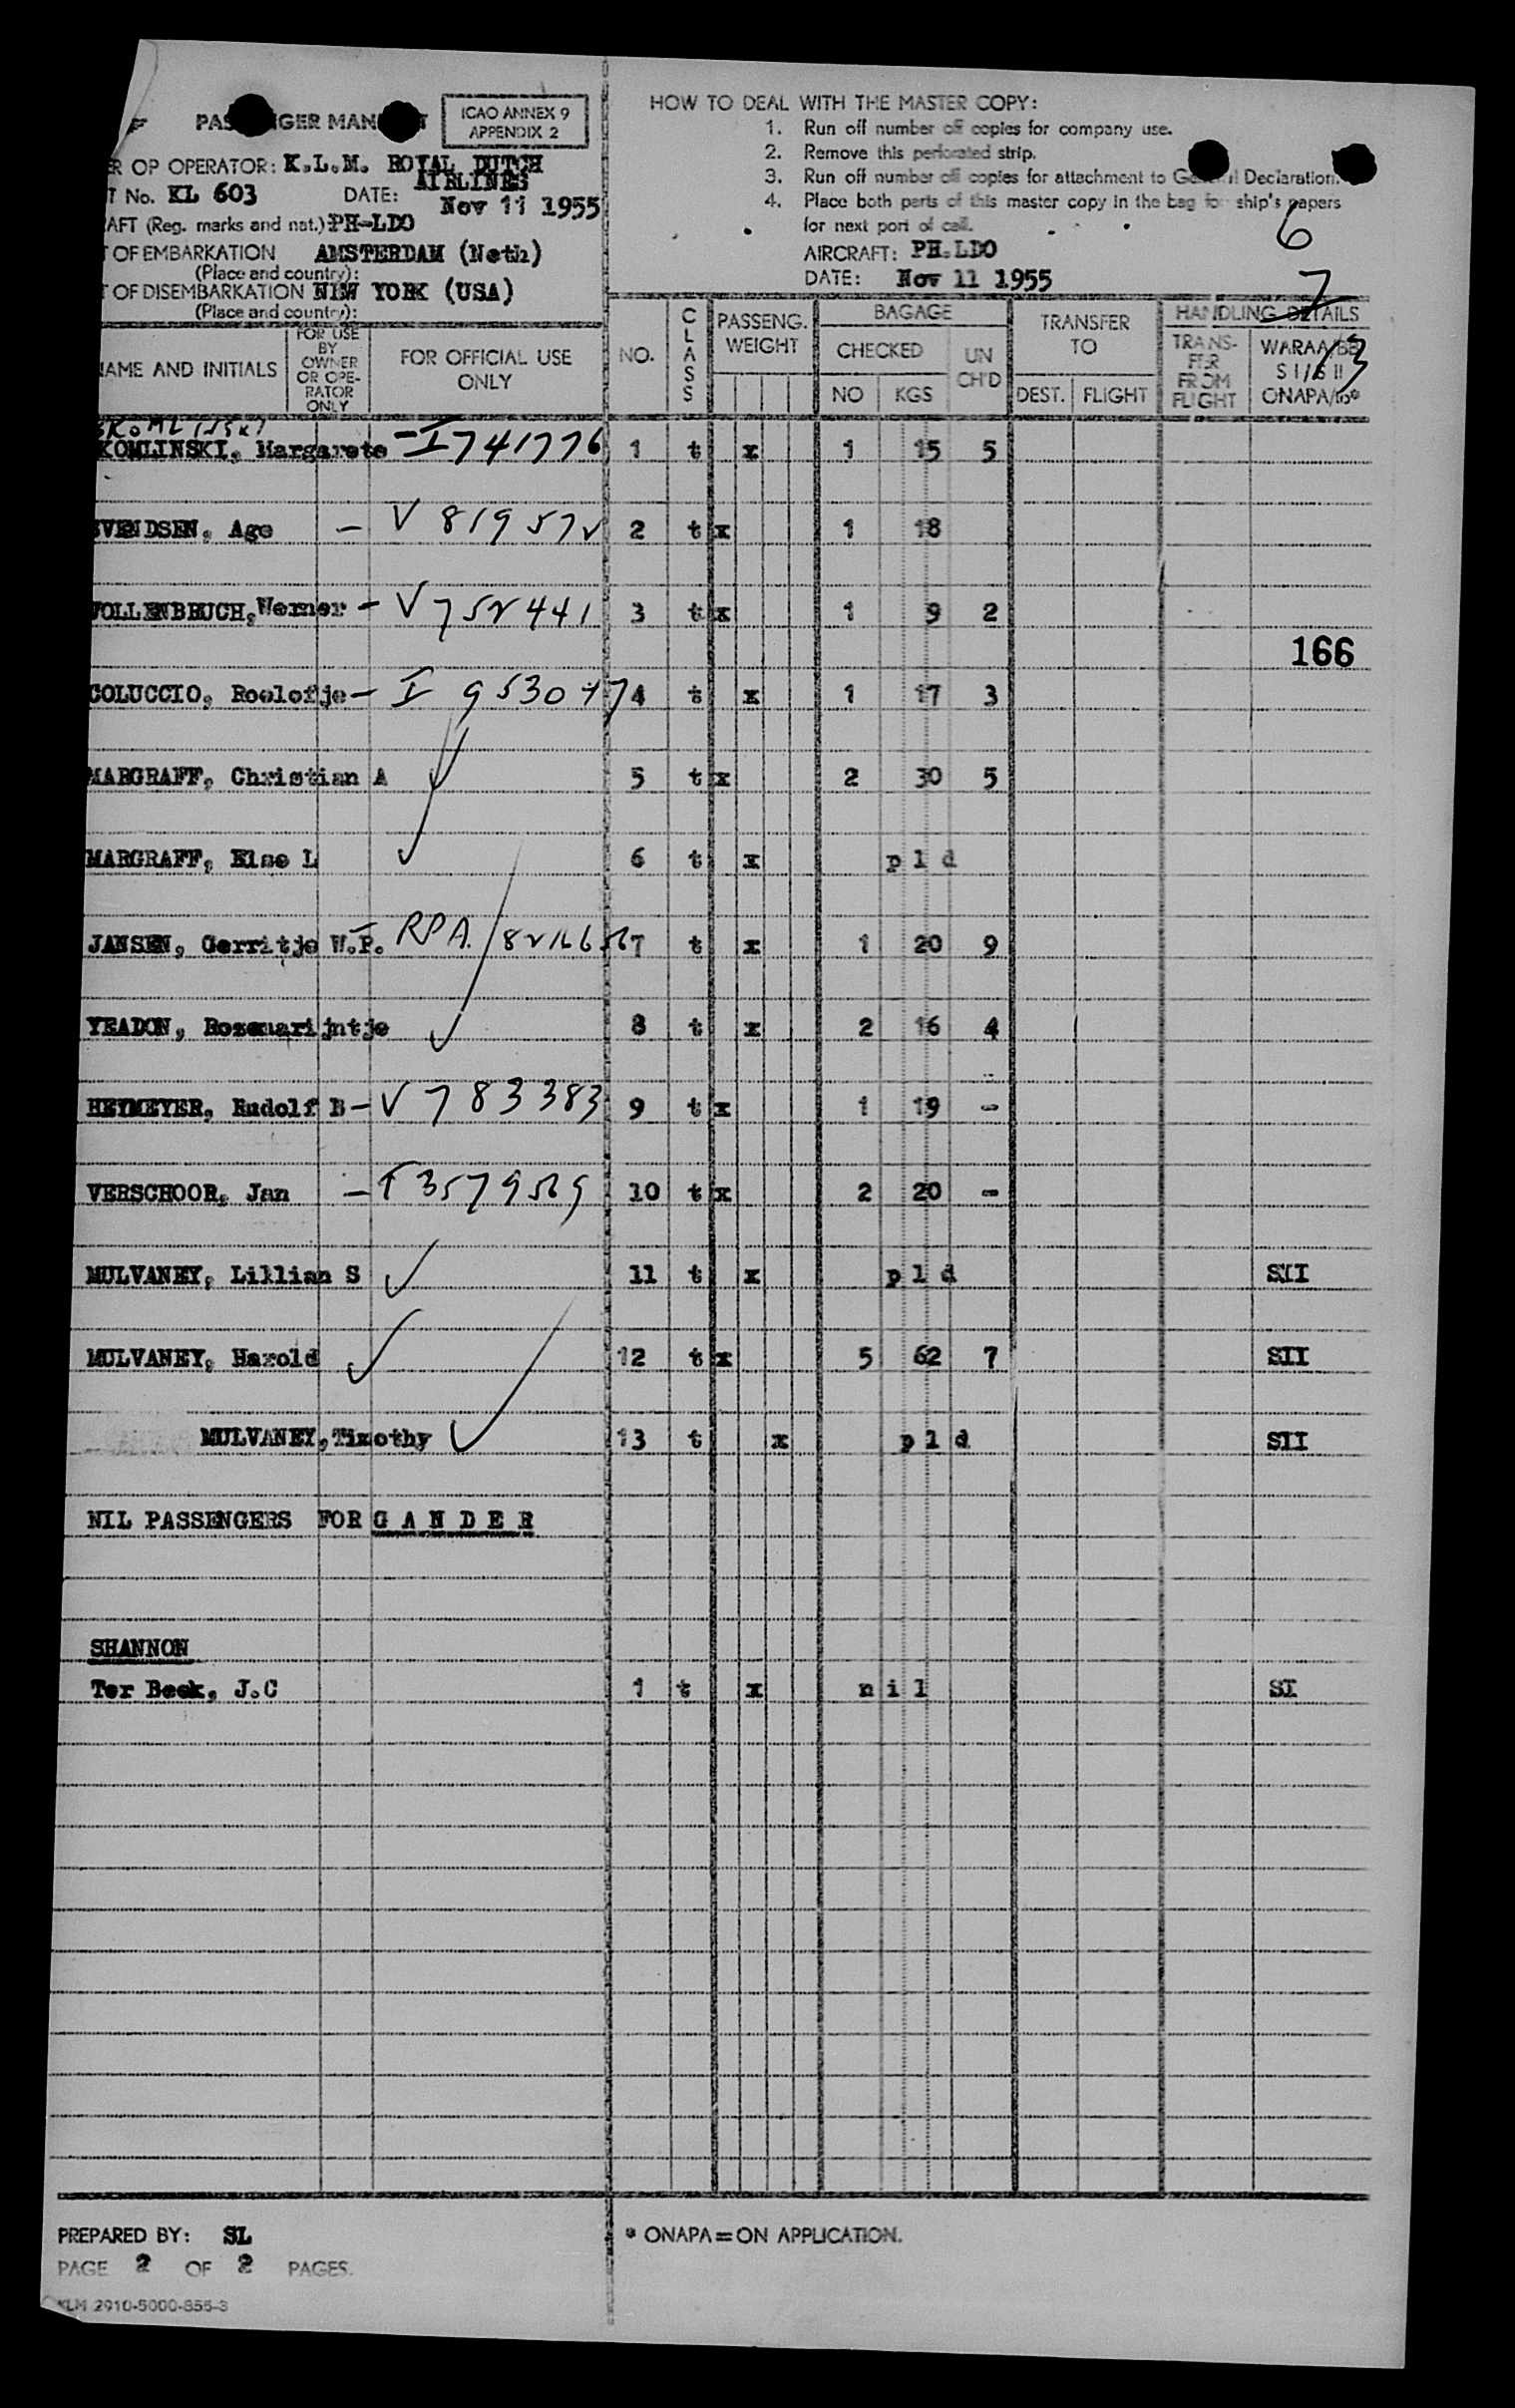 PASSENGER MANIFEST
ICAO ANNEX 9
APPENDIX 2
R OP OPERATOR: K.L.M. ROYAL DUTCH
AIRLINES
T No. KL 603 DATE: Nov 11 1955
AFT (Reg. marks and nat.) PH-LDO
T OF EMBARKATION AMSTERDAM (Neth)
(Place and country):
T OF DISEMBARKATION NEW YORK (USA)
(Place and country):
HOW TO DEAL WITH THE MASTER COPY:
1. Run off number of copies for company use.
2. Remove this perforated strip.
3. Run off number off copies for attachment to General Declaration.
4. Place both parts of this master copy in the bag for ship's papers
for next port of call.
AIRCRAFT: PH.LDO
DATE: Nov 11 1955
6
7
13
NAME AND INITIALS
FOR USE
BY
OWNER
OR OPE-
RATOR
ONLY
FOR OFFICIAL USE
ONLY
NO.
CLASS
PASSENG.
WEIGHT
BAGAGE
CHECKED
NO KGS
UN
CH'D
TRANSFER
TO
DEST. FLIGHT
HANDLING DETAILS
TRANS-
FER
FROM
FLIGHT
WARAA/BE
S I/S II
ONAPA/to*
SKOMLINSKI
KOMLINSKI, Margarete - I 741776 1 t x 1 15 5
SVENDSEN, Age - V 819572 2 t x 1 18
VOLLENBRUCH, Werner - V 752441 3 t x 1 9 2
166
COLUCCIO, Roelofje - I 4 t x 1 17 3
MARGRAFF, Christian A 5 t x 2 30 5
MARGRAFF, Else L 6 t x p l d
JANSEN, Gerritje W.P. RPA. 7 t x 1 20 9
YEADON, Rozemarijntje 8 t x 2 16 4
HEYMEYER, Rudolf B - V 783383 9 t x 1 19 -
VERSCHOOR, Jan 10 t x 2 20 -
MULVANEY, Lillian S 11 t x p l d SII
MULVANEY, Harold 12 t x 5 62 7 SII
MULVANEY, Timothy 13 t x p l d SII
NIL PASSENGERS FOR G A N D E R
SHANNON
Ter Beek, J.C 1 t x n i l SI
PREPARED BY: SL
PAGE 2 OF 2 PAGES.
* ONAPA = ON APPLICATION.
KLM 2910-5000-855-3